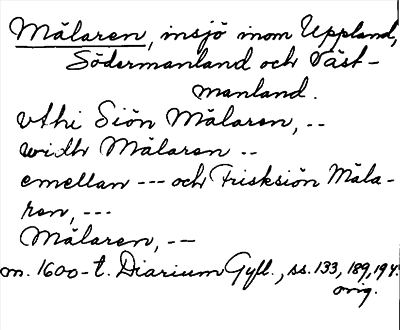 Mälaren, insjö inom Uppland,
Södermanland och Väst-
manland.
vthi Siön Mälaren, --
widh Mälaren --
emellan --- och Frisksiön Mäla-
ren, ---
Mälaren, --
m. 1600-t. Diarium Gyll., ss. 133, 189, 194.
orig.